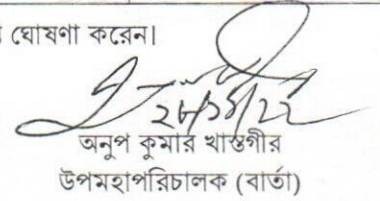 ঘোষণা করেন।
অনুপ কুমার খাস্তগীর
উপমহাপরিচালক (বার্তা)